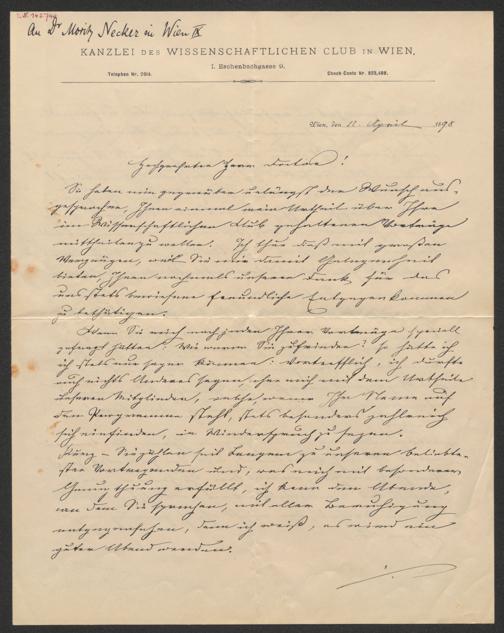 An Dr Moritz Necker in Wien IX
KANZLEI DES WISSENSCHAFTLICHEN CLUB IN WIEN,
I. Eschenbachgasse 9.
Telephon Nr. 2614. Check-Conto Nr. 825,489.
Wien, den 11. April 1898
Hochgeehrter Herr Doctor!
Sie haben mir gegenüber unlängst den Wunsch aus-
gesprochen, Ihnen einmal mein Urtheil über Ihre
im Wissenschaftlichen Club gehaltenen Vorträge
mittheilen zu wollen. Ich thue dieß mit großem
Vergnügen, weil Sie mir damit Gelegenheit
bieten, Ihnen nochmals unseren Dank für das
uns stets bewiesene freundliche Entgegenkommen
zu bethätigen.
Wenn Sie mich nach jedem Ihrer Vorträge speciell
gefragt hätten: Wie waren Sie zufrieden? so hätte ich
stets nur sagen können: vortrefflich, ich durfte
auch nichts Anderes sagen, ohne mich mit dem Urtheile
unserer Mitglieder, welche, wenn Ihr Name auf
dem Programme steht, stets besonders zahlreich
sich einfinden, in Widerspruch zu setzen.
Kurz – Sie zählen seit Langem zu unseren beliebte-
sten Vortragenden und, was mich mit besonderer
Genugthuung erfüllt, ich kann dem Abende,
an dem Sie sprechen, mit aller Beruhigung
entgegensehen, denn ich weiß, es wird ein
guter Abend werden.